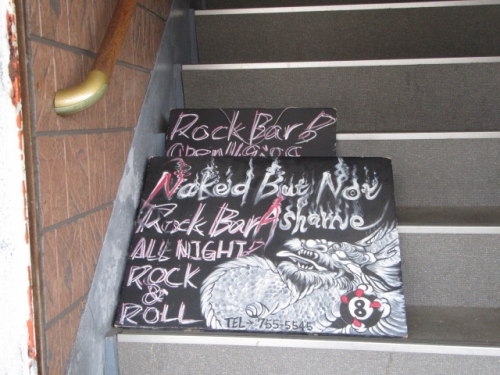 Rock Bar 8
Naked But Not
Rock Bar Ashame
ALL NIGHT
ROCK
&
ROLL
8
TEL - 755-5545